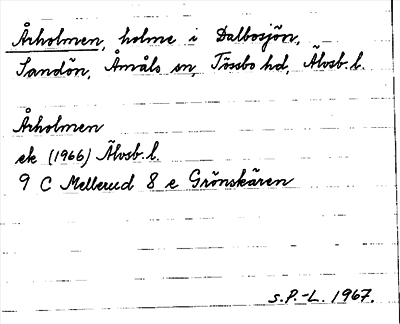 Årholmen, holme i Dalbosjön,
Sandön, Åmåls sn, Tössbo hd, Älvsb. l.
Årholmen
ek (1966) Älvsb. l.
9 C Mellerud 8 e Grönskären
s. P.-L. 1967.